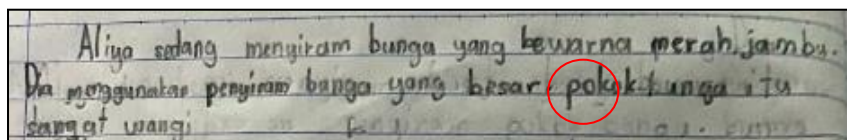 Aliya sedang menyiram bunga yang bewarna merah jambu.
Dia menggunakan penyiram bunga yang besar. pokok bunga itu
sangat wangi